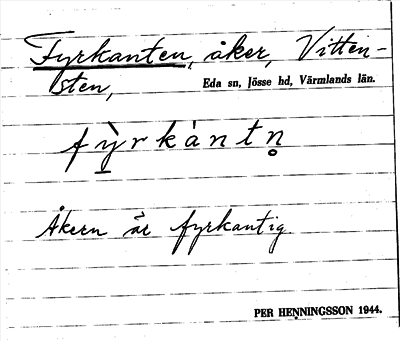 Fyrkanten, åker, Vitten-
sten, Eda sn, Jösse hd, Värmlands län.
fỳ̠rkàntn̥
Åkern är fyrkantig
PER HENNINGSSON 1944.